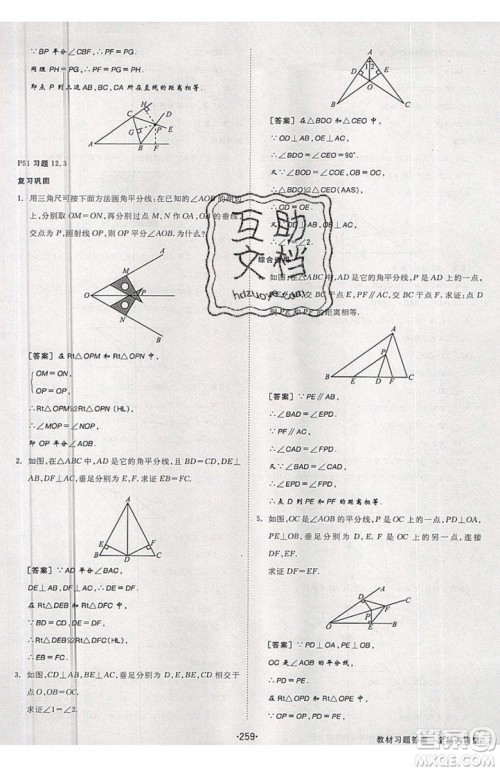 ∵ BP 平分∠CBF, ∴ PF＝PG.
同理 PH＝PG, ∴ PF＝PG＝PH.
即点 P 到三边 AB、BC、CA 所在直线的距离相等.
P51 习题 12.3
复习巩固
1. 用三角尺可按下面方法画角平分线:在已知的∠AOB 的两边
上,分别取 OM＝ON,再分别过点 M,N 作 OA,OB
的垂线,交点为 P,画射线 OP,则 OP 平分∠AOB.为什么?
[答案] 在 Rt△OPM 和 Rt△OPN 中,
OM＝ON,
OP＝OP,
∴ Rt△OPM≌Rt△OPN (HL),
∴ ∠POM＝∠PON.
即 OP 平分∠AOB.
2. 如图,在△ABC 中,AD 是它的角平分线,且 BD＝CD,DE⊥
AB,DF⊥AC,垂足分别为 E,F. 求证 EB＝FC.
[答案] ∵ AD 平分∠BAC,
DE⊥AB, DF⊥AC, ∴ DE＝DF.
在 Rt△DEB 和 Rt△DFC 中,
∴ Rt△DEB≌Rt△DFC(HL),
∴ EB＝FC.
3. 如图,CD⊥AB,BE⊥AC,垂足分别为 D,E,BE,CD 相交于
点 O,OB＝OC.
求证∠1＝∠2.
[答案] 在△BDO 和△CEO 中,
∵ CD⊥AB, BE⊥AC,
∴ ∠BDO＝∠CEO＝90°.
∴ △BDO≌△CEO (AAS),
∴ OD＝OE.
∴ ∠1＝∠2.
综合运用
AD 是它的角平分线,P 是 AD 上的一点,
交 BC 于点 E,PF∥AC 交 BC 于点 F. 求证:点 D
[答案] ∵ PE∥AB,
∴ ∠BAD＝∠EPD.
∴ ∠CAD＝∠FPD.
∴ ∠BAD＝∠CAD,
∴ ∠EPD＝∠FPD.
∴ 点 D 到 PE 和 PF 的距离相等.
5. 如图,OC 是∠AOB 的平分线,P 是 OC 上的一点,PD⊥OA,
PE⊥OB,垂足分别为 D,E. F 是 OC 上的另一点,连接 DF,
EF. 求证 DF＝EF.
[答案] ∵ PD⊥OA, PE⊥OB,
OC 是∠AOB 的平分线,
∴ PD＝PE.
在 Rt△OPD 和 Rt△OPE 中,
互助
文档
hdzuoye.com
·259·
教材习题答案